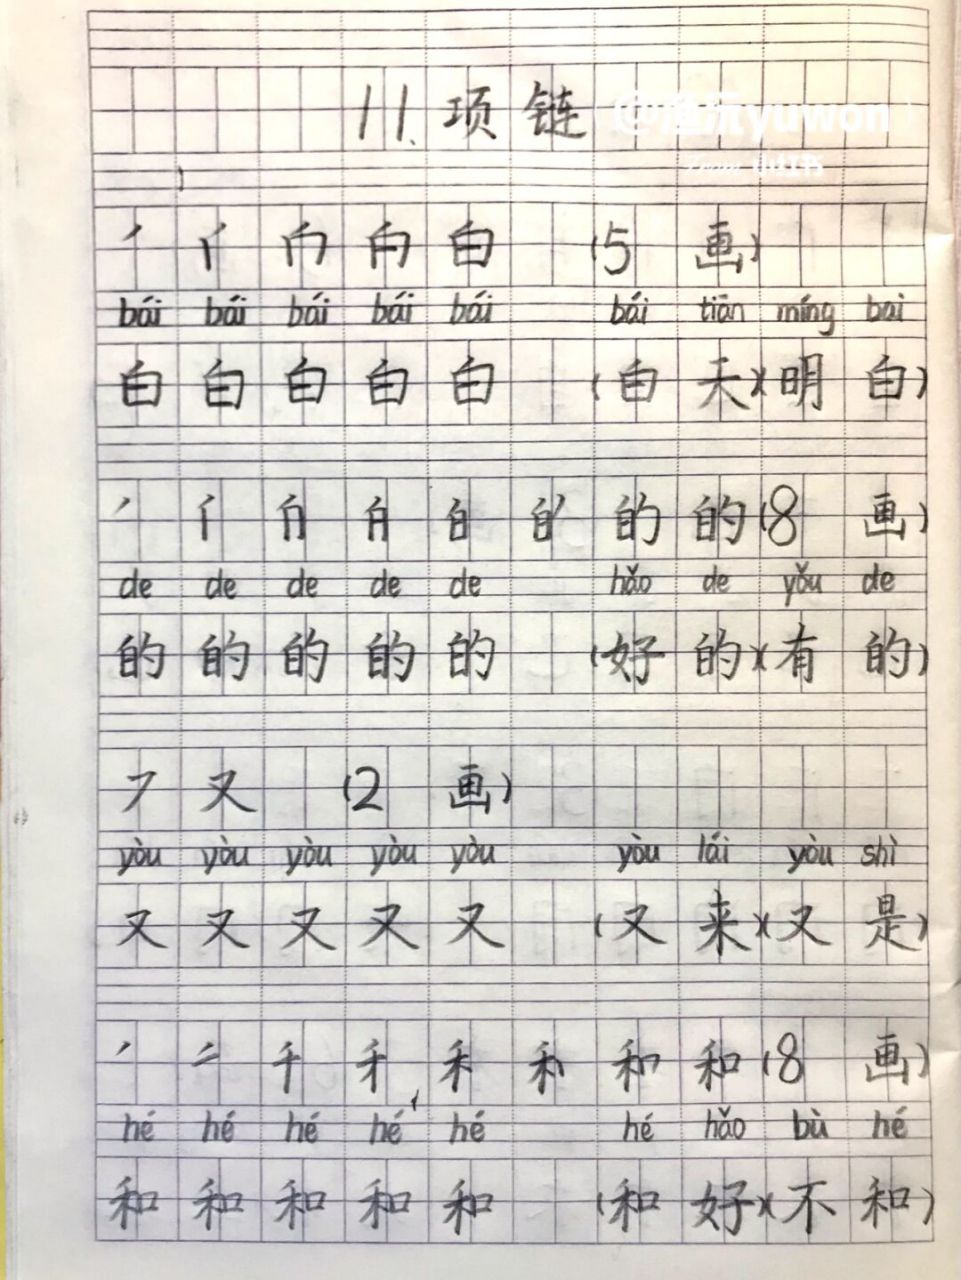 11、项链
@渔沅yuwon
小红书
丿 亻 白 (5画)
bái bái bái bái bái bái tiān míng bai
白 白 白 白 白 (白天)(明白)
丿 亻 白 的 的 (8画)
de de de de de hǎo de yǒu de
的 的 的 的 的 (好的)(有的)
フ 又 (2画)
yòu yòu yòu yòu yòu yòu lái yòu shì
又 又 又 又 又 (又来)(又是)
丿 千 禾 和 和 (8画)
hé hé hé hé hé hé hǎo bù hé
和 和 和 和 和 (和好)(不和)